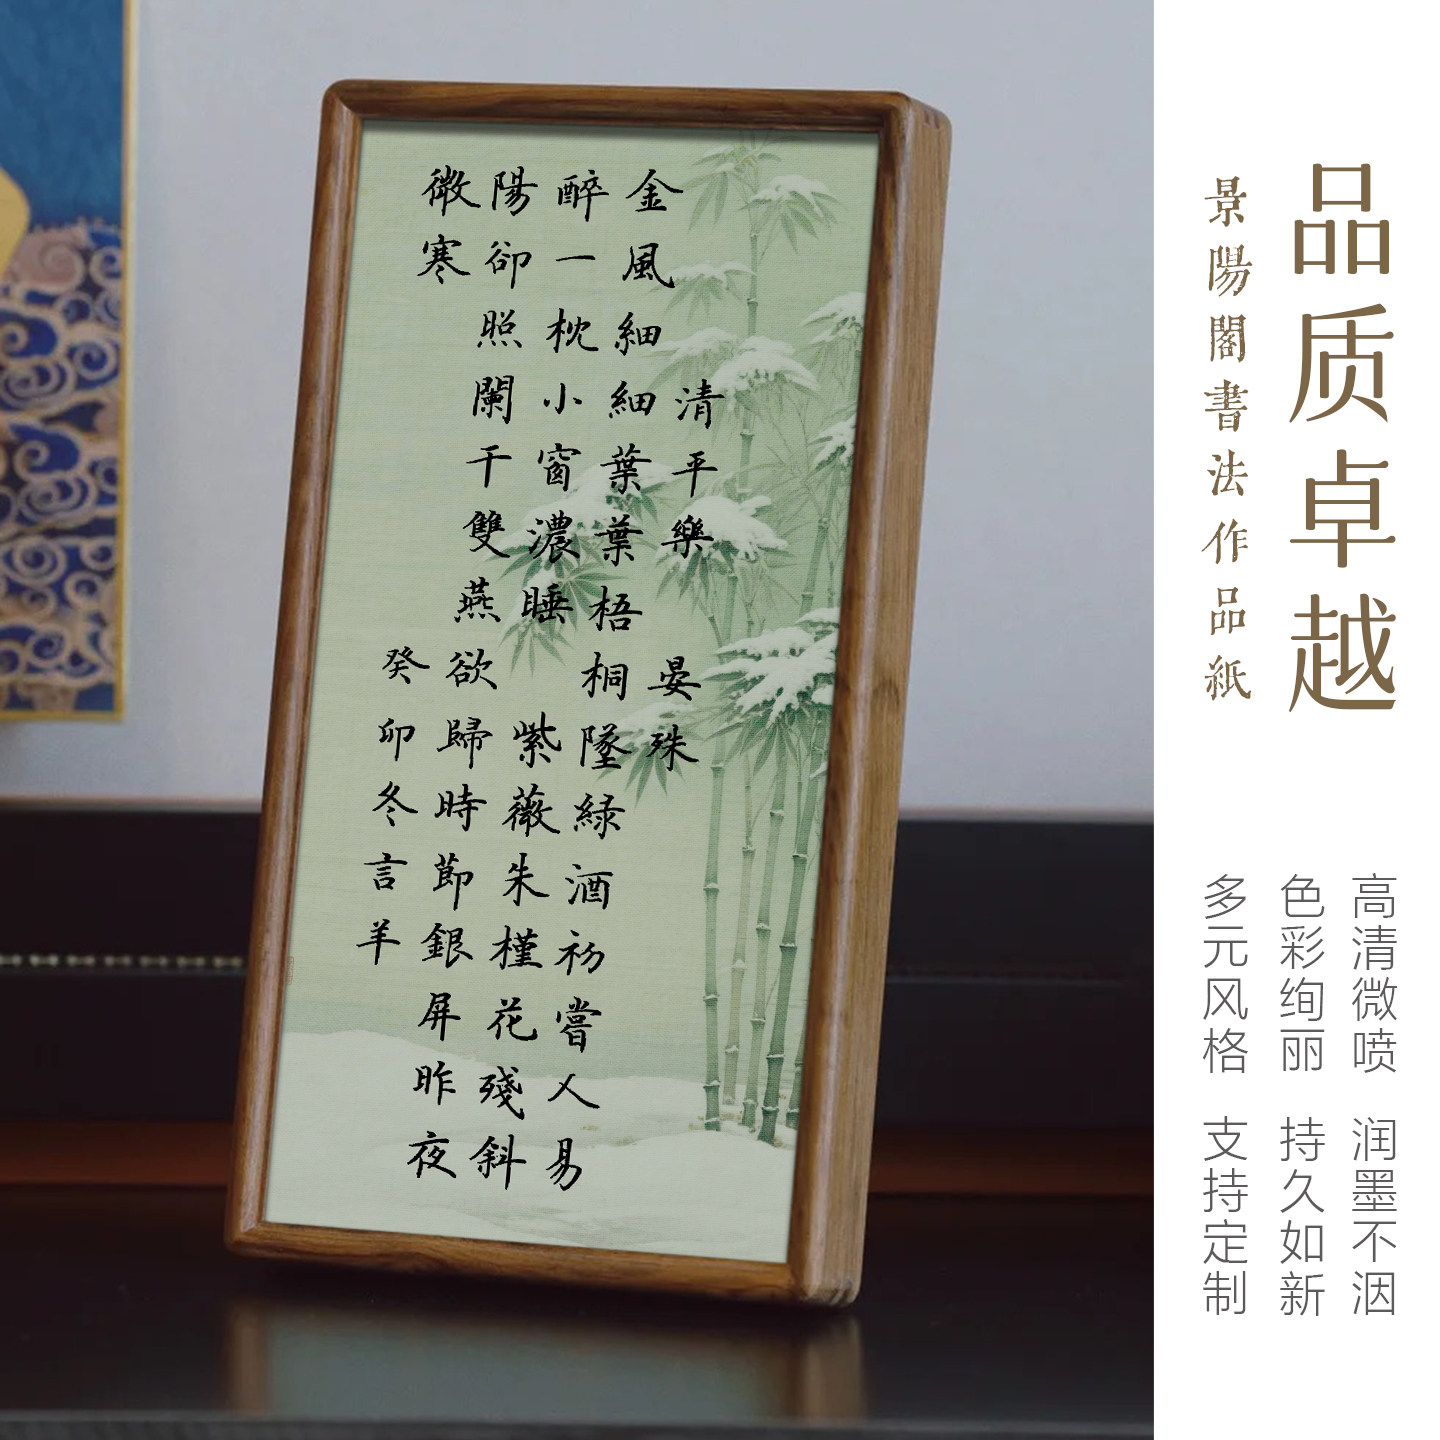 品质卓越
景陽閣書法作品紙
高清微喷 润墨不洇
色彩绚丽 持久如新
多元风格 支持定制
清平樂 晏殊
金風細細葉葉梧桐墜緑酒初嘗人易
醉一枕小窗濃睡 紫薇朱槿花殘斜
陽卻照闌干雙燕欲歸時節銀屏昨夜
微寒 癸卯冬言羊